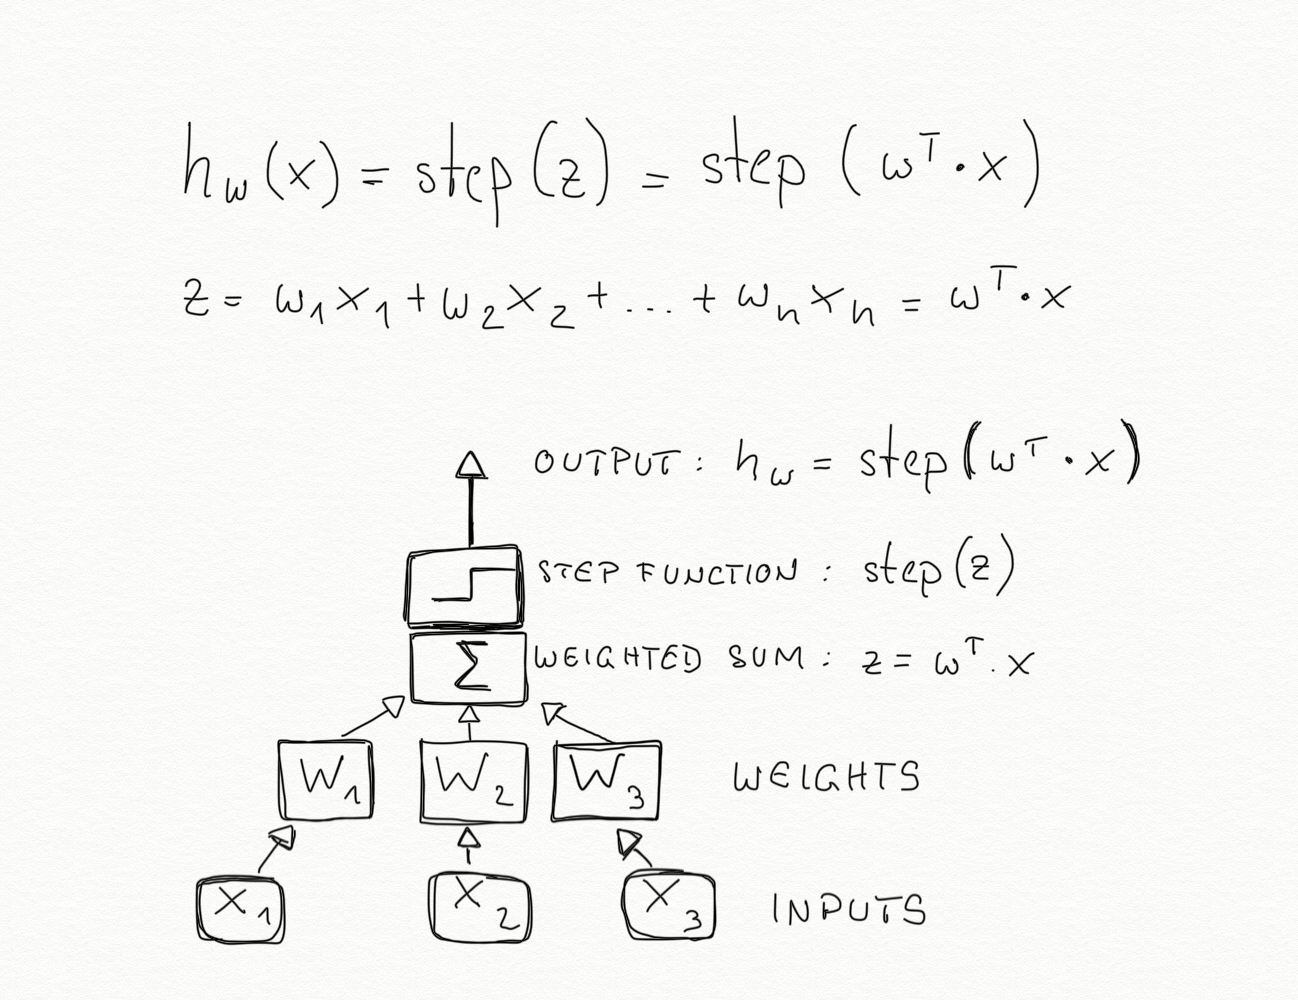 h_w (x) = step(z) = step (w^T · x)
z = w_1 x_1 + w_2 x_2 + ... + w_n x_n = w^T · x
OUTPUT : h_w = step(w^T · x)
STEP FUNCTION : step(z)
Σ WEIGHTED SUM : z = w^T · x
W_1 W_2 W_3 WEIGHTS
X_1 X_2 X_3 INPUTS